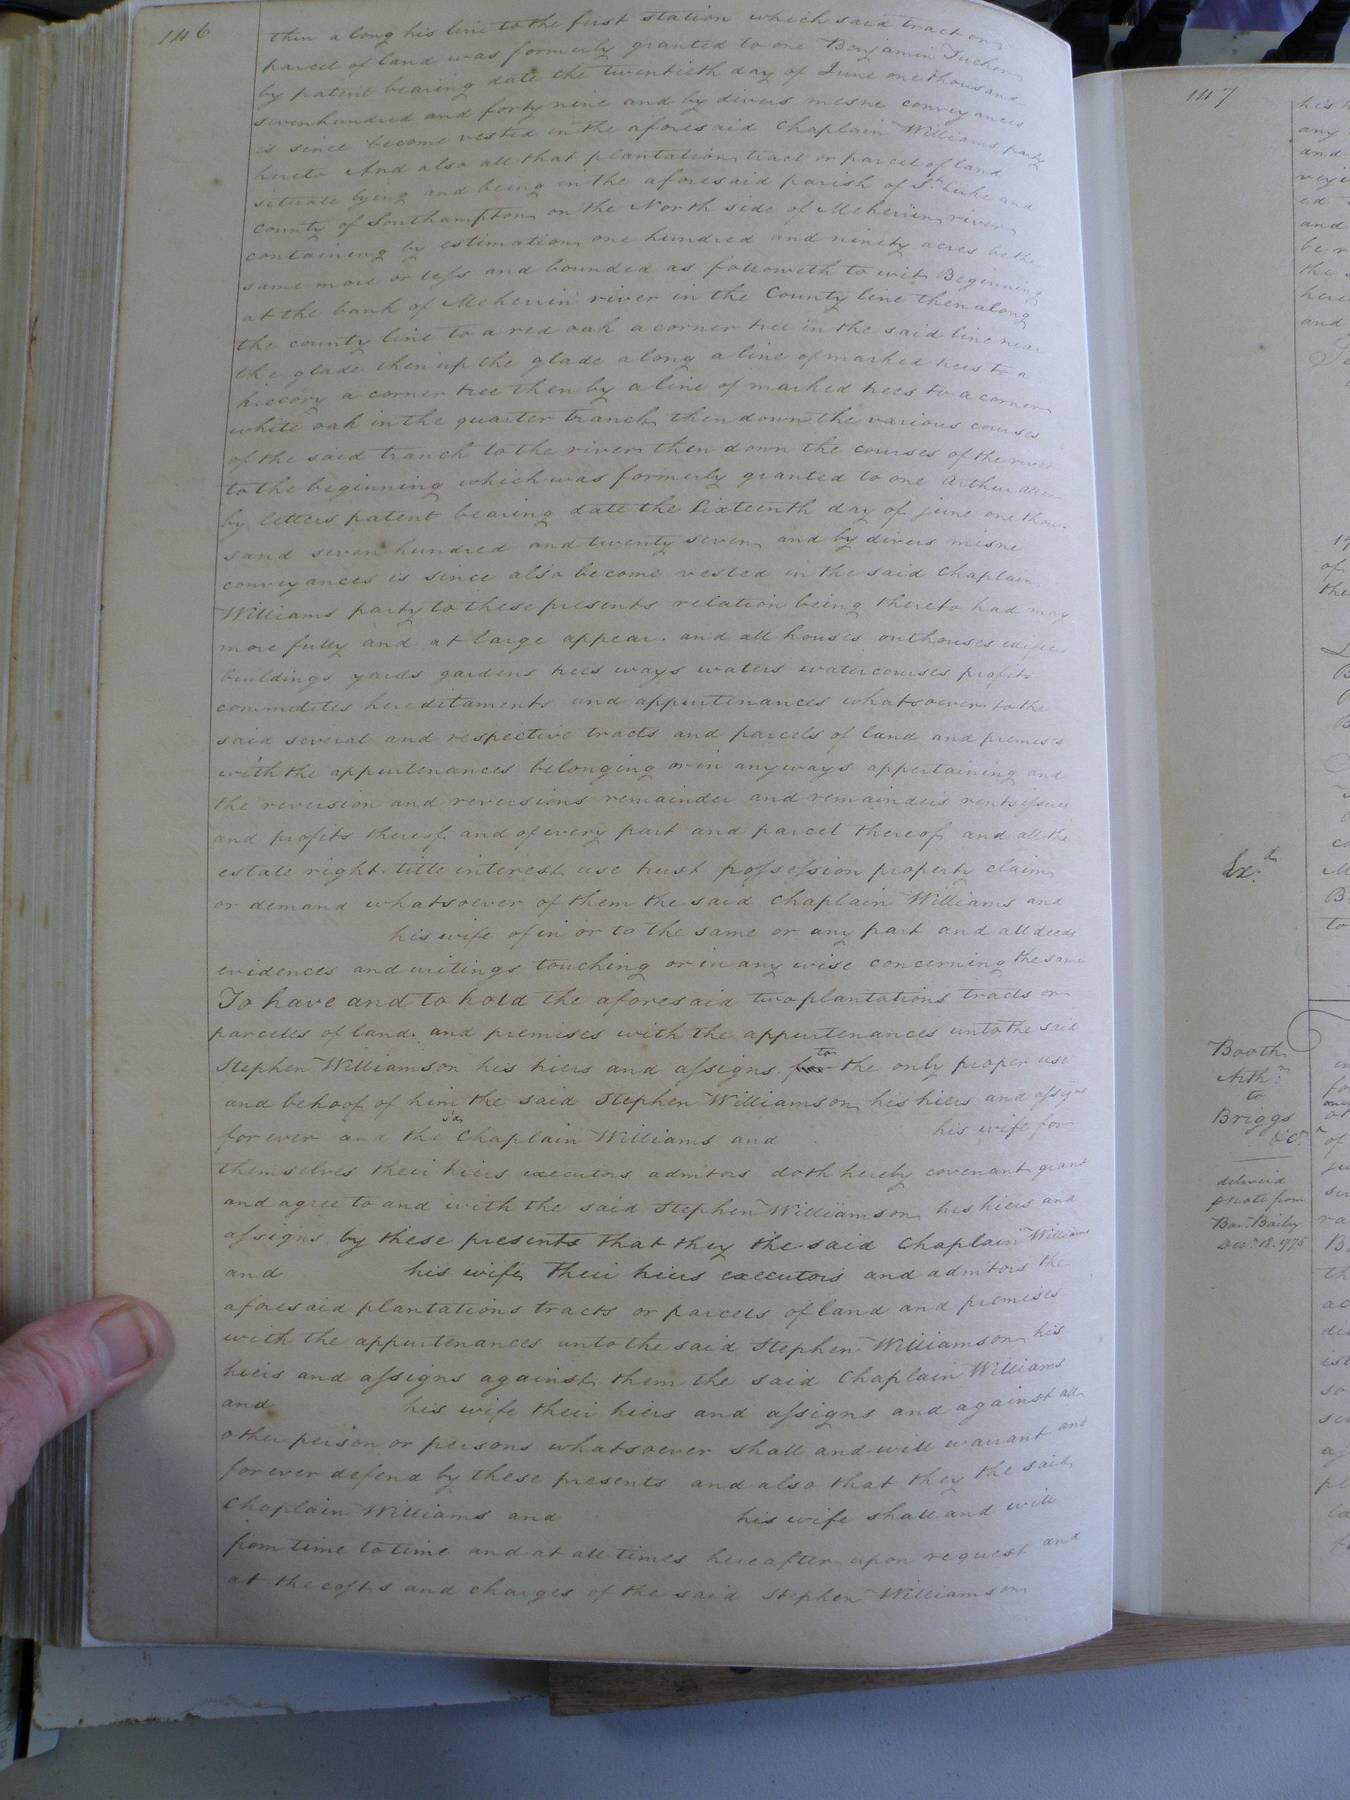 146
then along his line to the first station which said tract or
parcel of land was formerly granted to one Benjamin Tucker
by patent bearing date the twentieth day of June one thousand
sevenhundred and forty nine and by divers mesne conveyances
is since become vested in the aforesaid Chaplain Williams party
hereto And also all that plantation tract or parcel of land
situate lying and being in the aforesaid parish of St. Luke and
County of Southampton on the North side of Meherrin river
containing by estimation one hundred and ninety acres be the
same more or less and bounded as followeth to wit Beginning
at the bank of Meherrin river in the County line then along
the county line to a red oak a corner tree in the said line near
the glade then up the glade along a line of marked trees to a
hiccory a corner tree then by a line of marked trees to a corner
white oak in the quarter branch then down the various courses
of the said branch to the river then down the courses of the river
to the beginning which was formerly granted to one Arthur Allen
by letters patent bearing date the Sixteenth day of june one thou-
sand seven hundred and twenty seven and by divers mesne
conveyances is since also become vested in the said Chaplain
Williams party to these presents relation being thereto had may
more fully and at large appear. and all houses outhouses edifices
buildings yards gardens trees ways waters watercourses profits
commodites hereditaments and appurtenances whatsoever to the
said several and respective tracts and parcels of land and premises
with the appurtenances belonging or in any ways appertaining and
the reversion and reversions remainder and remainders rents issues
and profits thereof and of every part and parcel thereof and all the
estate right title interest use trust possession property claim
or demand whatsoever of them the said Chaplain Williams and
his wife of in or to the same or any part and all deeds
evidences and writings touching or in any wise concerning the same
To have and to hold the aforesaid two plantations tracts or
parcells of land. and premises with the appurtenances unto the said
Stephen Williamson his hiers and assigns to the only proper use
and behoof of him the said Stephen Williamson his hiers and assigns
for ever and the sd. Chaplain Williams and his wife for
themselves their hiers executors admitors doth hereby covenant grant
and agree to and with the said Stephen Williamson his hiers and
assigns by these presents that they the said Chaplain Williams
and his wife their hiers executors and admitors the
aforesaid plantations tracts or parcels of land and premises
with the appurtenances unto the said Stephen Williamson his
hiers and assigns against them the said Chaplain Williams
and his wife their hiers and assigns and against all
other person or persons whatsoever shall and will warrant and
for ever defend by these presents and also that they the said
Chaplain Williams and his wife shall and will
from time to time and at all times hereafter upon request and
at the costs and charges of the said Stephen Williamson
147
his
any
and
ed
and
be
the
here
and
of
the
to
Exd.
Booth
Arthr.
to
Briggs
&c.
deliverd
pnote from
Bar. Baily
Decr. 18. 1775